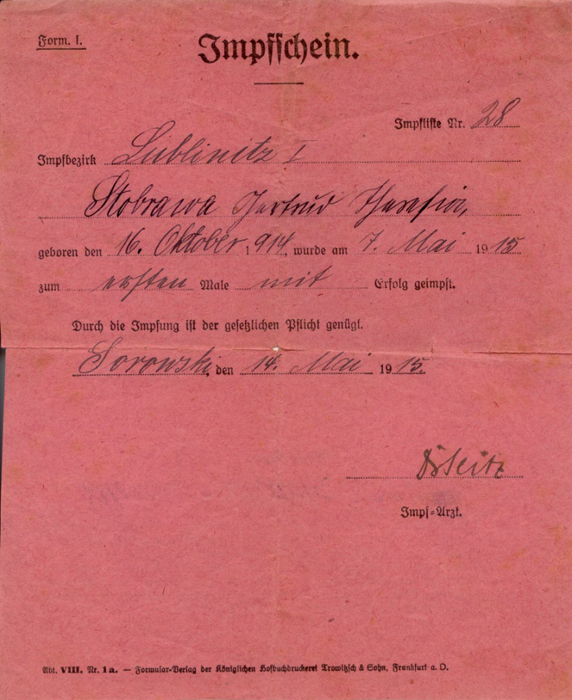 Form. I.
Impfschein.
Impfliste Nr. 28
Impfbezirk Lublinitz I
Stobrawa Gertrud Theresia,
geboren den 16. Oktober 1914, wurde am 7. Mai 1915
zum ersten Male mit Erfolg geimpft.
Durch die Impfung ist der gesetzlichen Pflicht genügt.
Sorowski, den 14. Mai 1915.
Dr Seitz
Impf-Arzt.
Abt. VIII. Nr. 1a. — Formular-Verlag der Königlichen Hofbuchdruckerei Trowitzsch & Sohn, Frankfurt a. O.